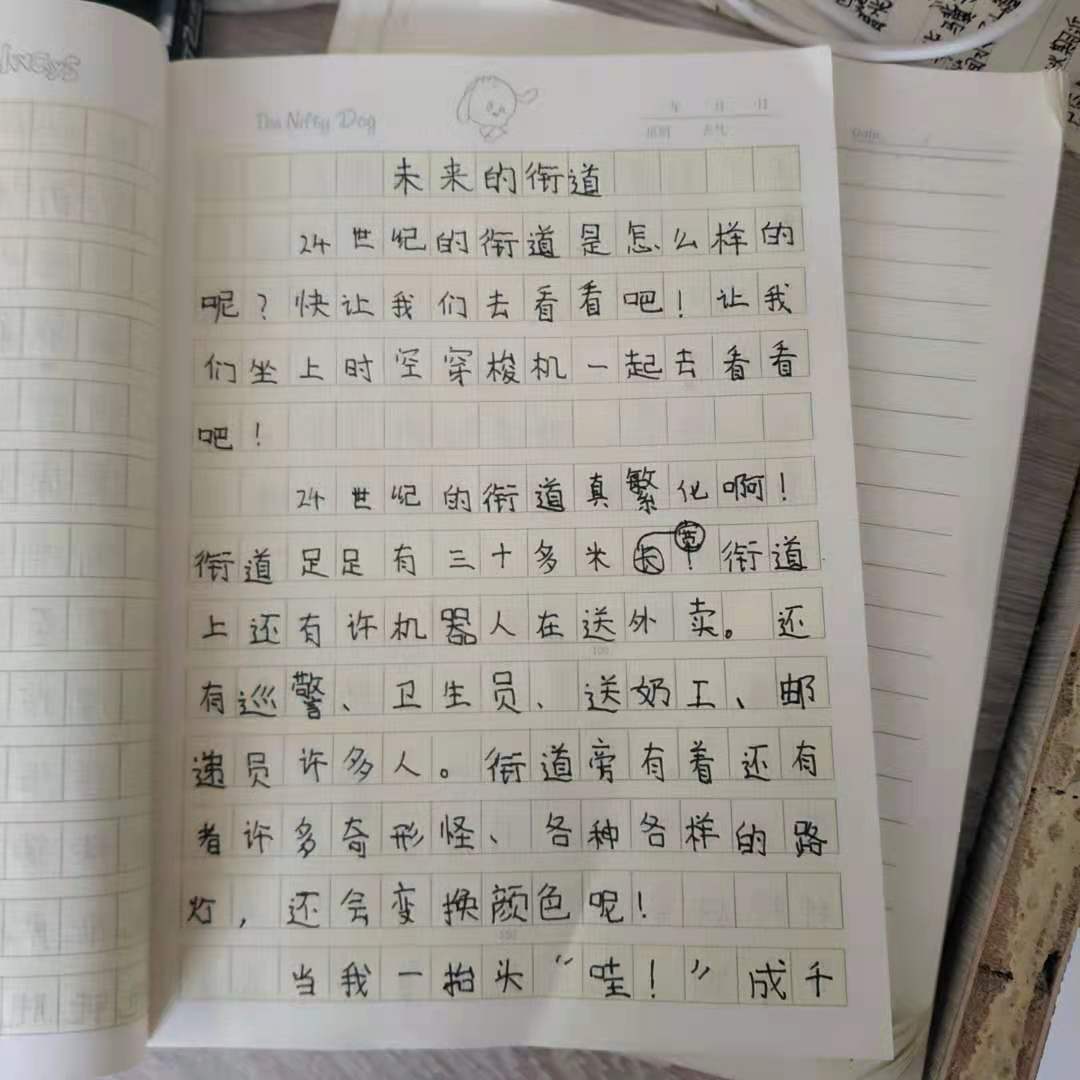 The Nifty Dog
年 月 日
Date
未来的街道
24世纪的街道是怎么样的
呢?快让我们去看看吧!让我
们坐上时空穿梭机一起去看看
吧!
24世纪的街道真繁化啊!
街道足足有三十多米长宽!街道
上还有许机器人在送外卖。还
有巡警、卫生员、送奶工、邮
递员许多人。街道旁有着还有
者许多奇形怪、各种各样的路
灯,还会变换颜色呢!
当我一抬头“哇!”成千